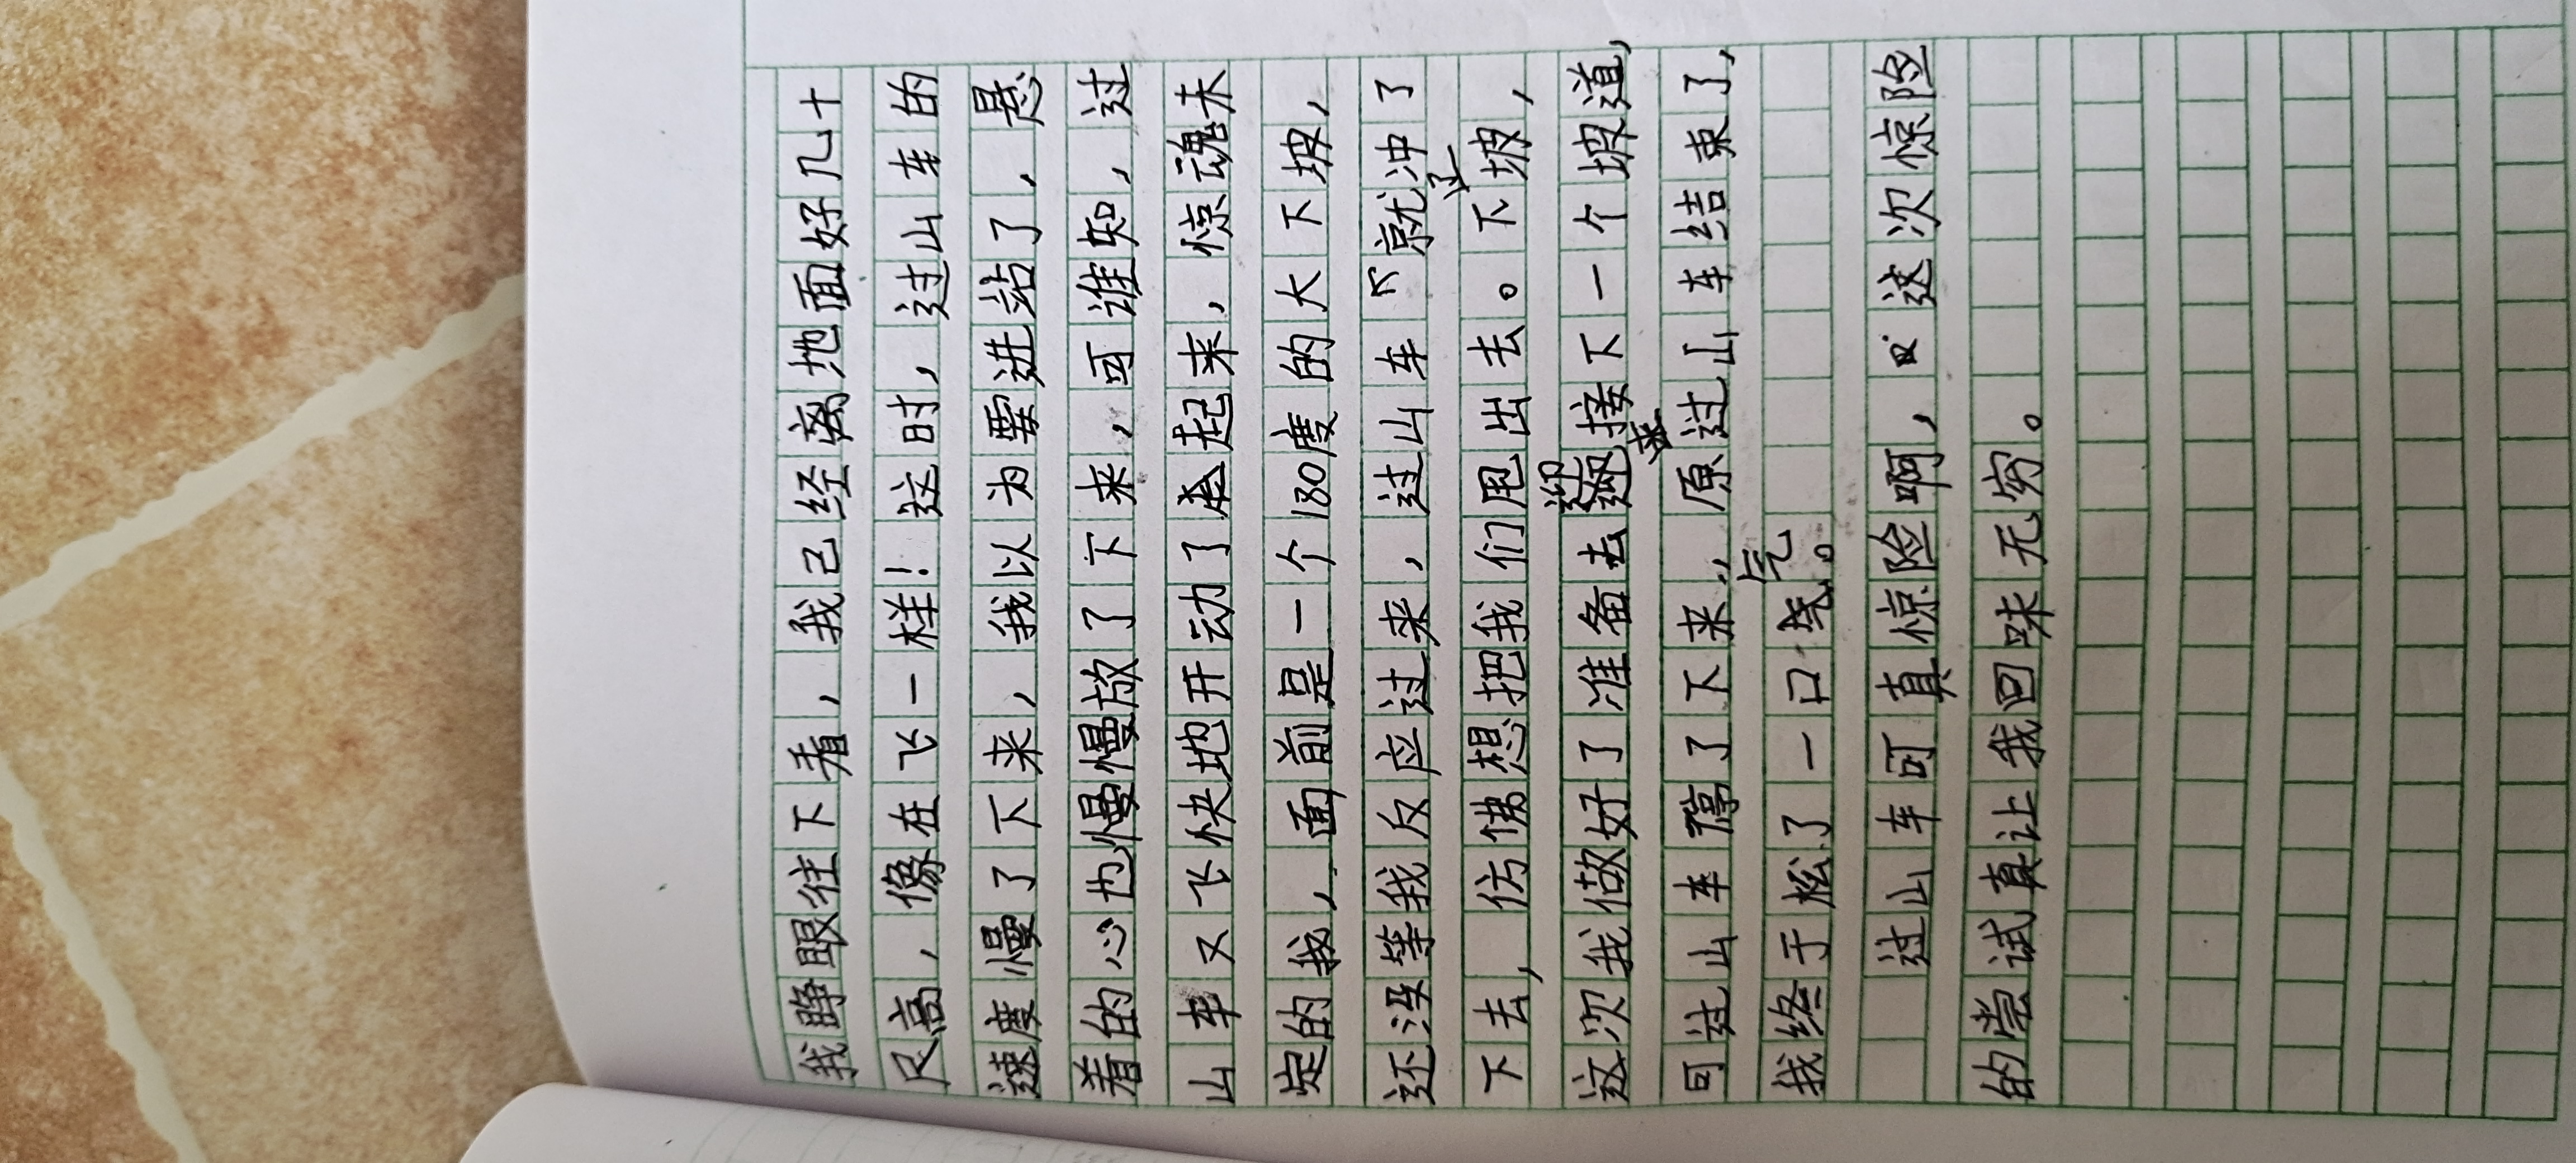 我睁眼往下看，我己经离地面好几十
尺高，像在飞一样！这时，过山车的
速度慢了下来，我以为要进站了，悬
着的心也慢慢放了下来，可谁知，过
山车又飞快地开动了起来，惊魂未
定的我，面前是一个180度的大下坡，
还没等我反应过来，过山车就冲了
下去，仿佛想把我们甩出去。下坡，
这次我做好了准备去迎接下一个坡道，
可过山车停了下来，原来过山车结束了，
我终于松了一口气。
过山车可真惊险啊，这次惊险
的尝试真让我回味无穷。